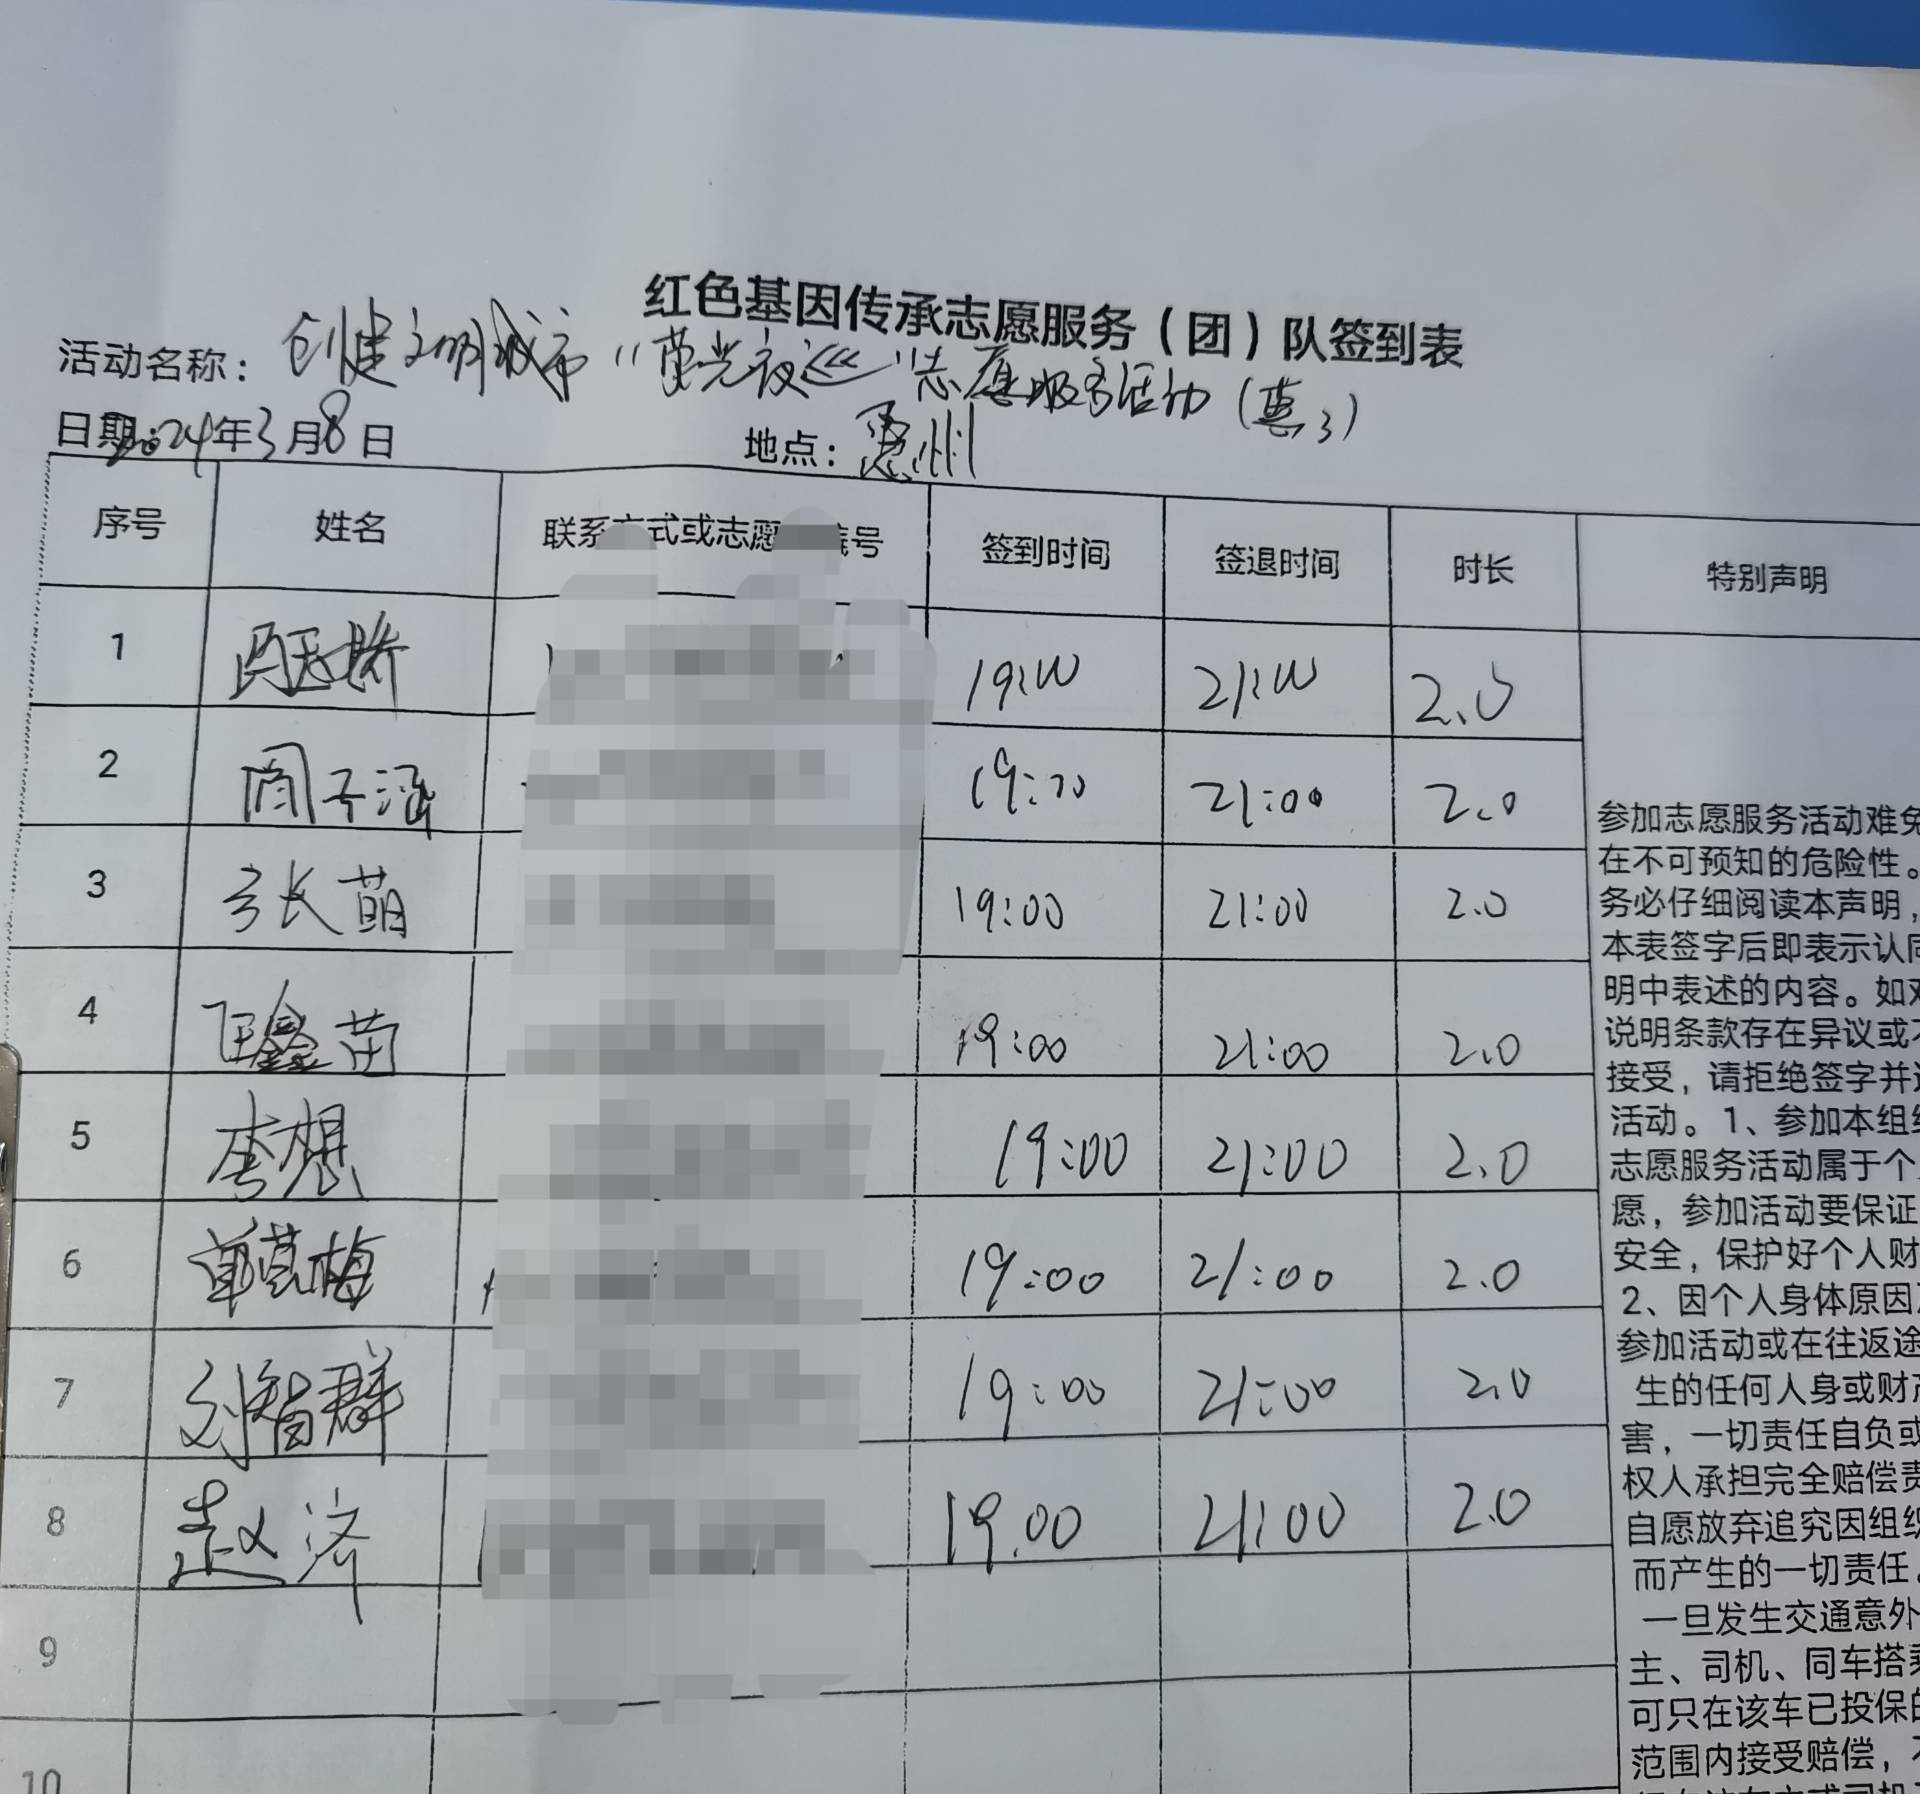 红色基因传承志愿服务（团）队签到表
活动名称：创建文明城市"萤光夜巡"志愿服务活动（惠3）
日期：2024年3月8日 地点：惠州
序号 姓名 联系方式或志愿 号 签到时间 签退时间 时长 特别声明
1 19:00 21:00 2.0
2 周子涵 19:00 21:00 2.0
3 张萌 19:00 21:00 2.0
4 匡鑫苗 19:00 21:00 2.0
5 李想 19:00 21:00 2.0
6 19:00 21:00 2.0
7 刘智群 19:00 21:00 2.0
8 赵济 19.00 21:00 2.0
9
10
参加志愿服务活动难免
在不可预知的危险性。
务必仔细阅读本声明，
本表签字后即表示认同
明中表述的内容。如对
说明条款存在异议或不
接受，请拒绝签字并退
活动。1、参加本组织
志愿服务活动属于个
愿，参加活动要保证
安全，保护好个人财
2、因个人身体原因
参加活动或在往返途
生的任何人身或财产
害，一切责任自负或
权人承担完全赔偿责
自愿放弃追究因组织
而产生的一切责任。
一旦发生交通意外
主、司机、同车搭乘
可只在该车已投保的
范围内接受赔偿，不